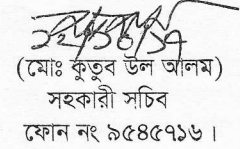 ২২/১০/১৭
(মোঃ কুতুব উল আলম)
সহকারী সচিব
ফোন নং ৯৫৪৫৭১৬।